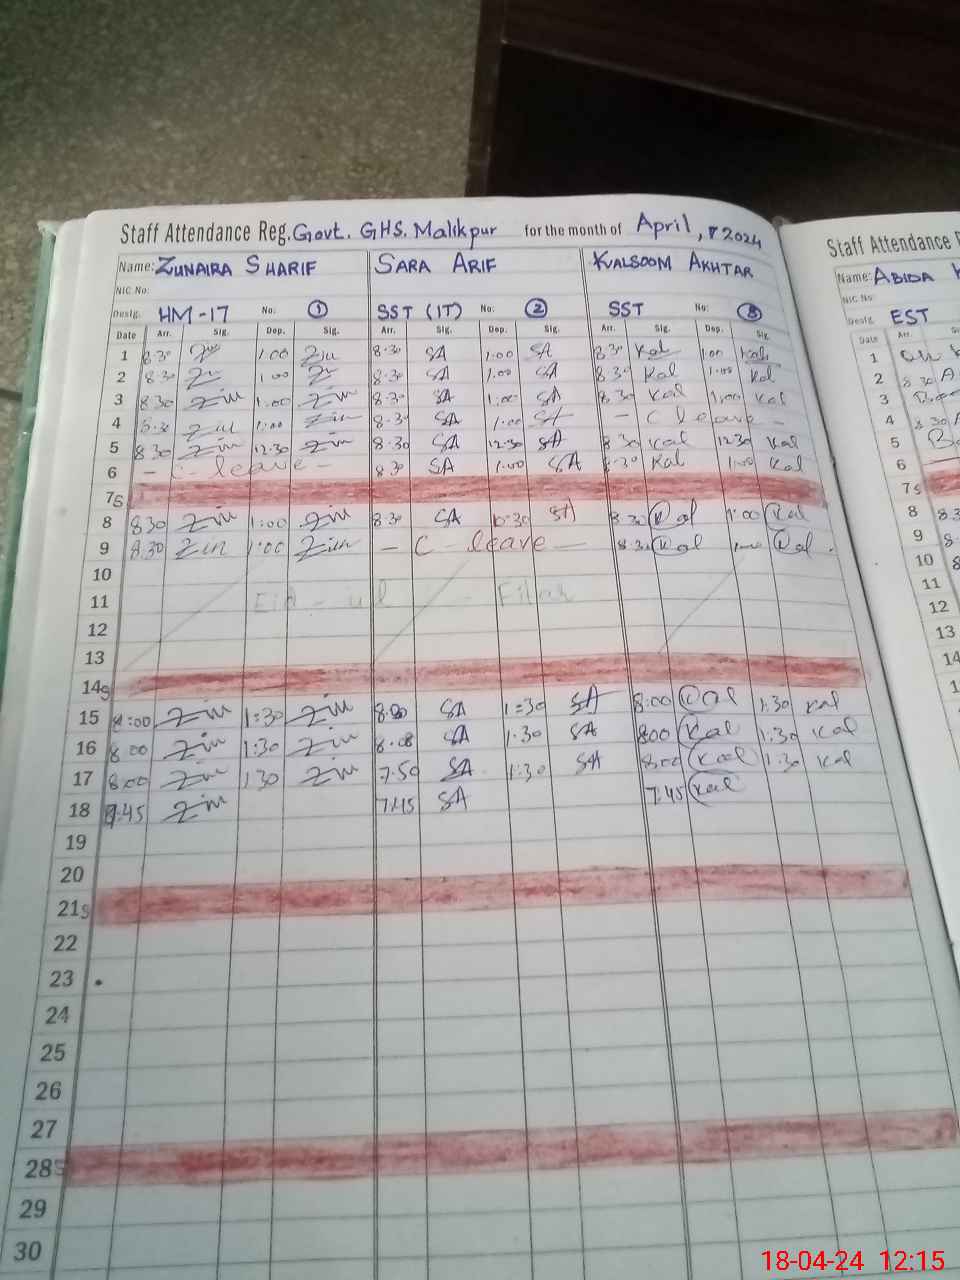 Staff Attendance Reg. Govt. GHS. Malikpur for the month of April, 2024
Staff Attendance
Name: ZUNAIRA SHARIF SARA ARIF KALSOOM AKHTAR
Name: ABIDA
NIC No:
NIC No:
Desig. HM-17 No: 1 SST (IT) No: 2 SST No: 3
Desig. EST
Date Arr. Sig. Dep. Sig. Arr. Sig. Dep. Sig. Arr. Sig. Dep. Sig.
Date Arr.
1 8:30 Zu 1:00 Zu 8:30 SA 1:00 SA 8:30 Kal 1:00 Kal
2 8:30 Zu 1:00 Zu 8:30 SA 1:00 SA 8:30 Kal 1:00 Kal
3 8:30 Zin 1:00 Zin 8:30 SA 1:00 SA 8:30 Kal 1:00 Kal
4 8:30 Zin 1:00 Zin 8:30 SA 1:00 SA - C leave -
5 8:30 Zin 12:30 Zin 8:30 SA 12:30 SA 8:30 Kal 12:30 Kal
6 - C leave - 8:30 SA 1:00 SA 8:30 Kal 1:00 Kal
7 S
8 8:30 Zin 1:00 Zin 8:30 SA SA 8:30 Kal 1:00 Kal
9 8:30 Zin 1:00 Zin - C leave - 8:30 Kal Kal
10
11 Eid - ul - Fitar
12
13
14 S
15 8:00 Zin 1:30 Zin 8:00 SA 1:30 SA 8:00 Kal 1:30 Kal
16 8:00 Zin 1:30 Zin SA 1:30 SA 8:00 Kal 1:30 Kal
17 8:00 Zin 1:30 Zin 7:50 SA 1:30 SA 8:00 Kal 1:30 Kal
18 7:45 Zin 7:45 SA 7:45 Kal
19
20
21 S
22
23
24
25
26
27
28 S
29
30
1
2
3
4
5
6
7 S
8
9
10
11
12
13
14
18-04-24 12:15